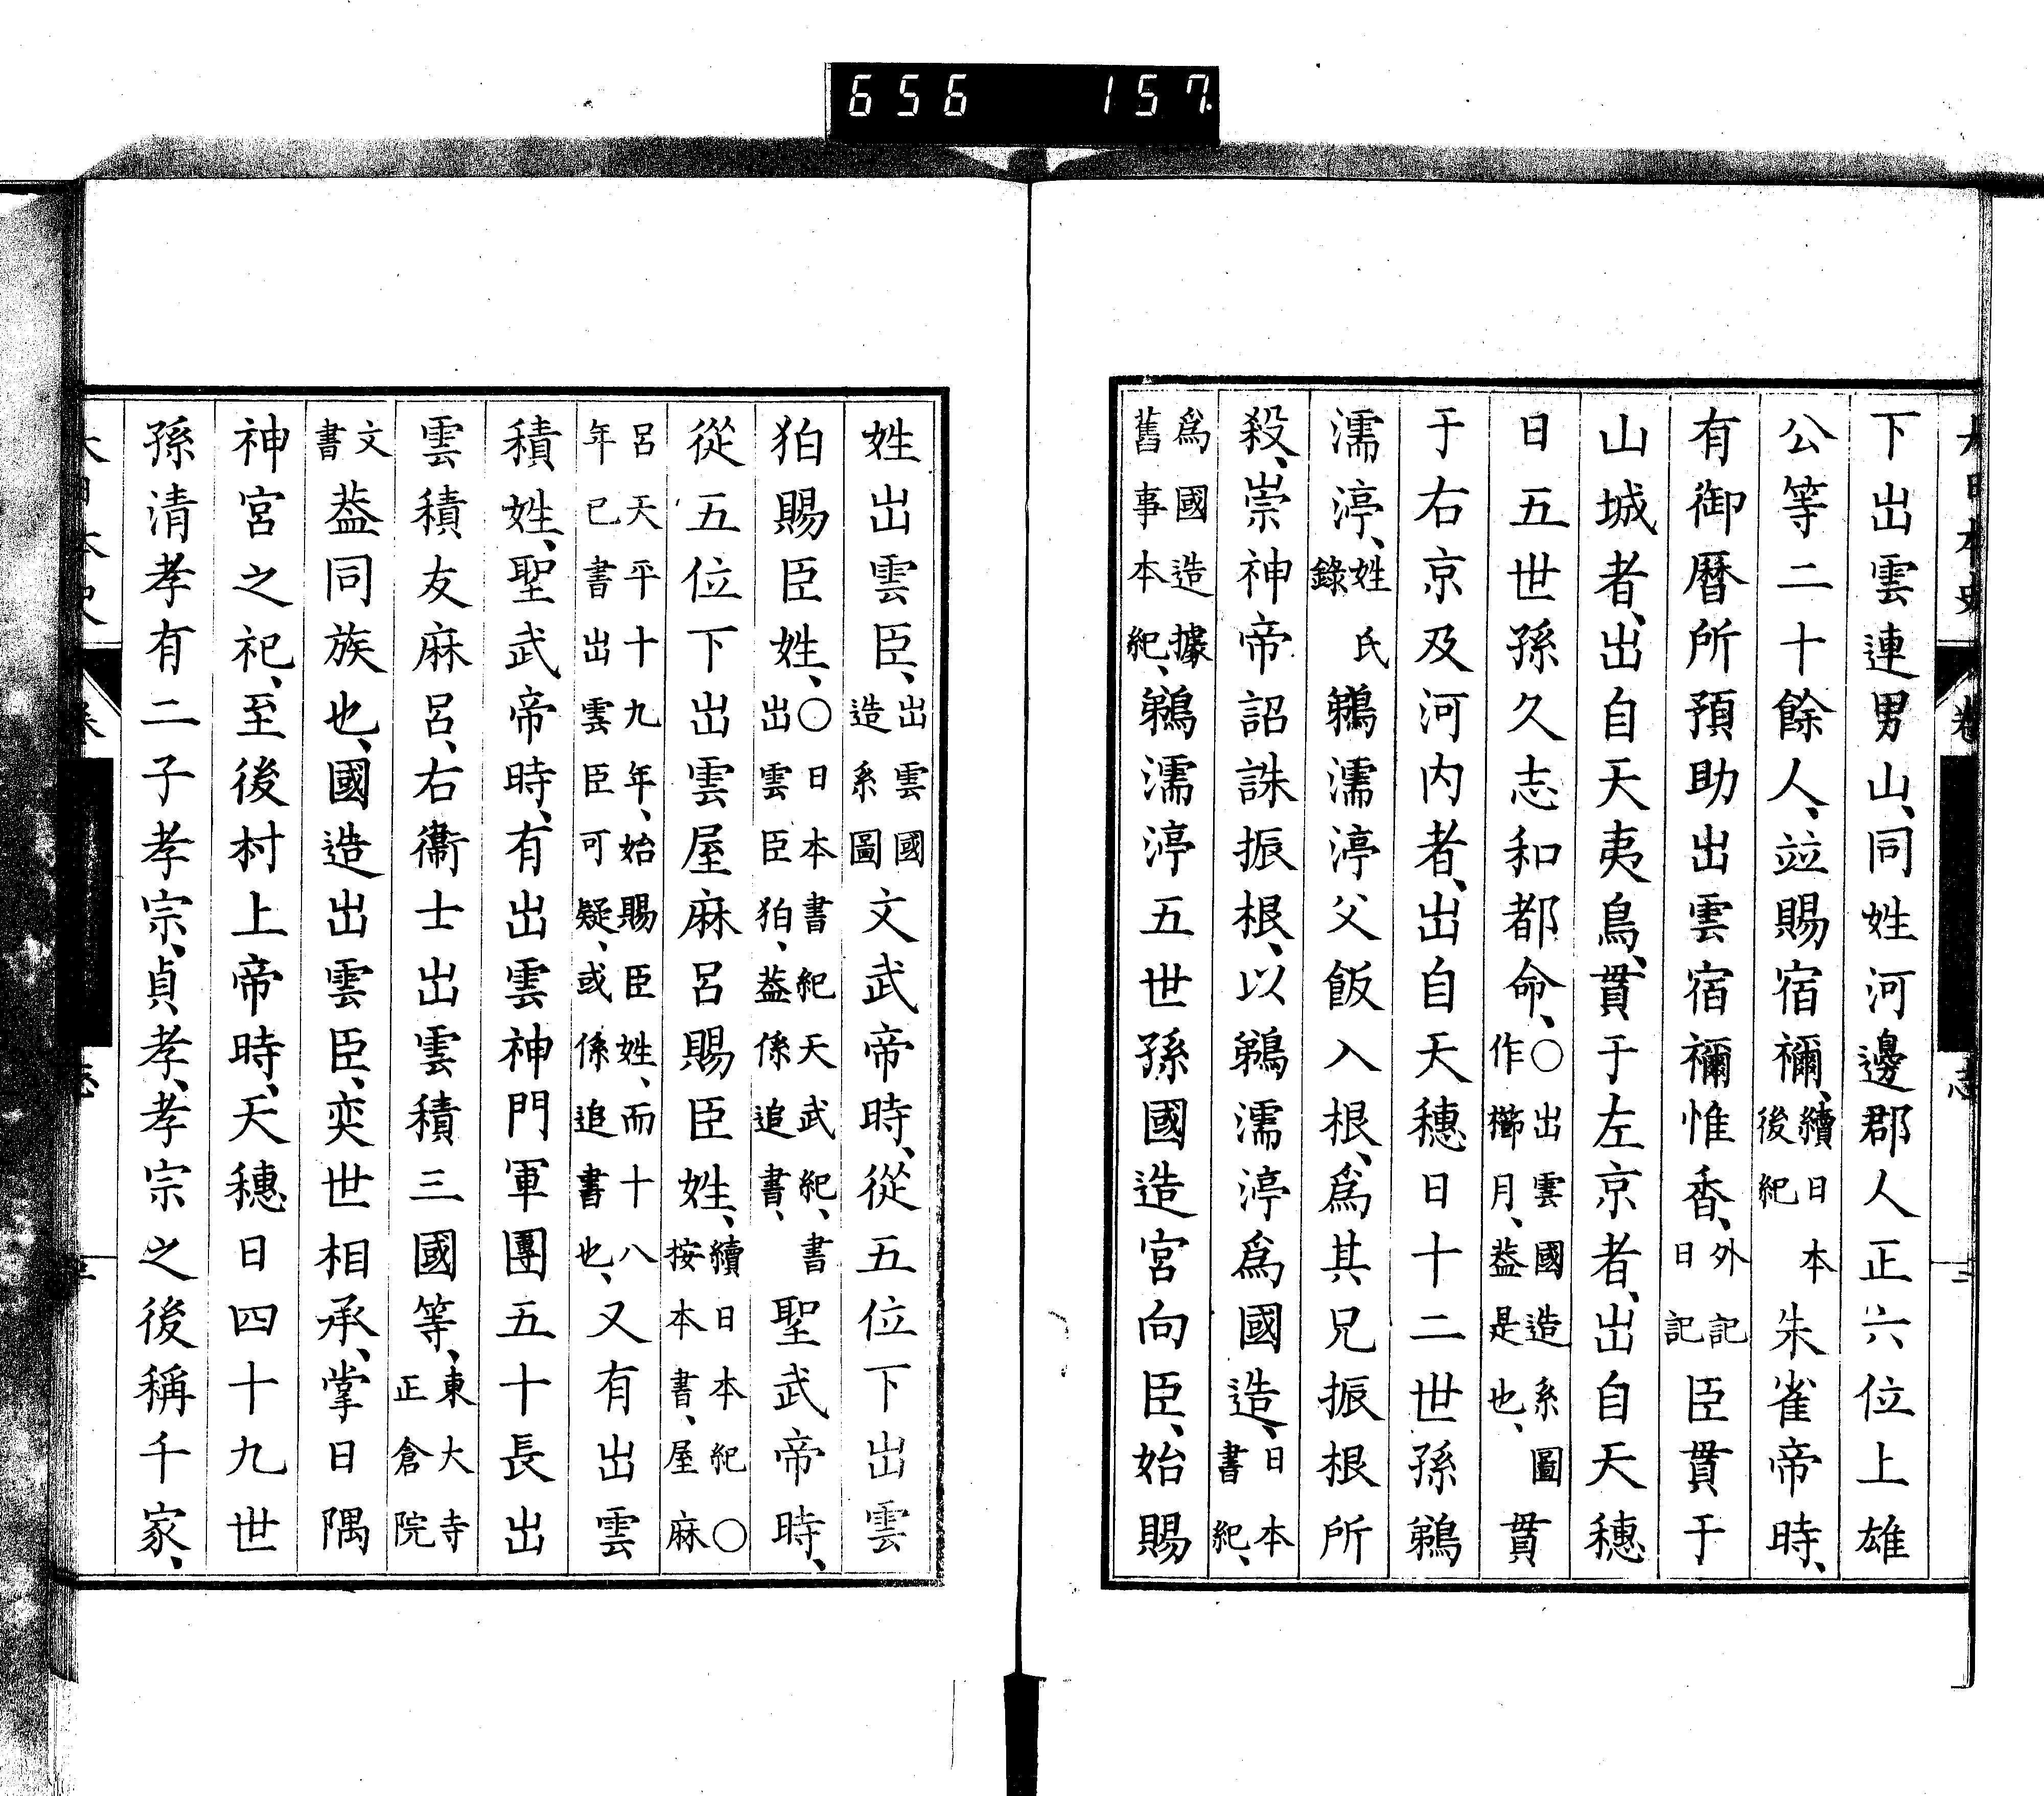 656 157
下出雲連男山、同姓河邊郡人正六位上雄
公等二十餘人、竝賜宿禰、續日本後紀朱雀帝時、
有御曆所預助出雲宿禰惟香、外記日記臣貫于
山城者、出自天夷鳥、貫于左京者、出自天穗
日五世孫久志和都命、〇出雲國造系圖作櫛月、蓋是也、貫
于右京及河内者、出自天穗日十二世孫鵜
濡渟、姓氏錄鵜濡渟父飯入根、爲其兄振根所
殺、崇神帝詔誅振根、以鵜濡渟爲國造、日本書紀、
爲國造據舊事本紀、鵜濡渟五世孫國造宮向臣、始賜
姓出雲臣、出雲國造系圖文武帝時、從五位下出雲
狛賜臣姓、〇日本書紀天武紀、書出雲臣狛、蓋係追書、聖武帝時、
從五位下出雲屋麻呂賜臣姓、續日本紀〇按本書、屋麻
呂天平十九年、始賜臣姓、而十八年已書出雲臣可疑、或係追書也、又有出雲
積姓、聖武帝時、有出雲神門軍團五十長出
雲積友麻呂、右衞士出雲積三國等、東大寺正倉院
文書蓋同族也、國造出雲臣、奕世相承、掌日隅
神宮之祀、至後村上帝時、天穗日四十九世
孫清孝有二子孝宗、貞孝、孝宗之後稱千家、